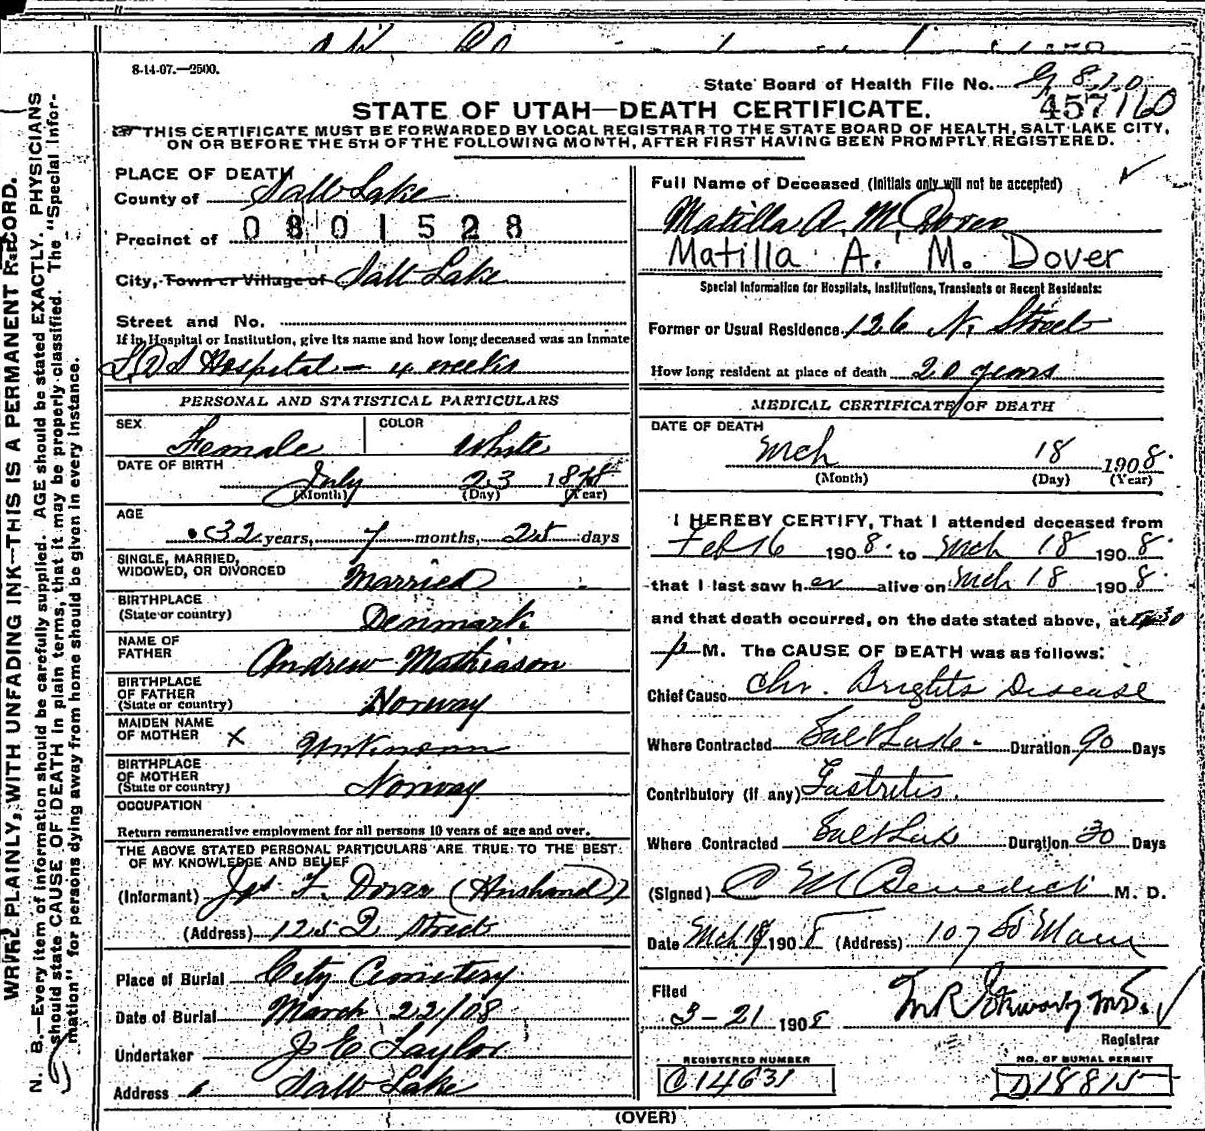 8-14-07.—2500.
State Board of Health File No. G 810
457160
STATE OF UTAH—DEATH CERTIFICATE.
☞ THIS CERTIFICATE MUST BE FORWARDED BY LOCAL REGISTRAR TO THE STATE BOARD OF HEALTH, SALT LAKE CITY,
ON OR BEFORE THE 5TH OF THE FOLLOWING MONTH, AFTER FIRST HAVING BEEN PROMPTLY REGISTERED.
PLACE OF DEATH
County of Salt Lake
Precinct of 0801528
City, Town or Village of Salt Lake
Street and No.
If in Hospital or Institution, give its name and how long deceased was an inmate
L D S Hospital — 4 weeks
PERSONAL AND STATISTICAL PARTICULARS
SEX Female COLOR White
DATE OF BIRTH July 23 18
(Month) (Day) (Year)
AGE
32 years, 7 months, 25 days
SINGLE, MARRIED,
WIDOWED, OR DIVORCED Married
BIRTHPLACE
(State or country) Denmark
NAME OF
FATHER Andrew Mathiason
BIRTHPLACE
OF FATHER
(State or country) Norway
MAIDEN NAME
OF MOTHER X Unknown
BIRTHPLACE
OF MOTHER
(State or country) Norway
OCCUPATION
Return remunerative employment for all persons 10 years of age and over.
THE ABOVE STATED PERSONAL PARTICULARS ARE TRUE TO THE BEST
OF MY KNOWLEDGE AND BELIEF
(Informant) Jos F. Dover (Husband)
(Address) 125 Street
Place of Burial City Cemetery
Date of Burial March 22/08
Undertaker J E Taylor
Address Salt Lake
Full Name of Deceased (Initials only will not be accepted)
Matilla A. M. Dover
Matilla A. M. Dover
Special Information for Hospitals, Institutions, Transients or Recent Residents:
Former or Usual Residence 126 N. Street
How long resident at place of death 20 years
MEDICAL CERTIFICATE OF DEATH
DATE OF DEATH
Mch 18 1908.
(Month) (Day) (Year)
I HEREBY CERTIFY, That I attended deceased from
Feb 16 1908. to Mch 18 1908.
that I last saw her alive on Mch 18 1908.
and that death occurred, on the date stated above, at 30
p M. The CAUSE OF DEATH was as follows:
Chief Cause Chr. Brights Disease
Where Contracted Salt Lake - Duration 90 Days
Contributory (if any) Gastritis.
Where Contracted Salt Lake Duration 30 Days
(Signed) C M Benedict M. D.
Date Mch 19 1908 (Address) 107 So Main
Filed
3-21 1908
Registrar
REGISTERED NUMBER
C14631
NO. OF BURIAL PERMIT
D18815
(OVER)
WRITE PLAINLY, WITH UNFADING INK—THIS IS A PERMANENT RECORD.
N. B.—Every item of information should be carefully supplied. AGE should be stated EXACTLY. PHYSICIANS
should state CAUSE OF DEATH in plain terms, that it may be properly classified. The "Special Infor-
mation" for persons dying away from home should be given in every instance.